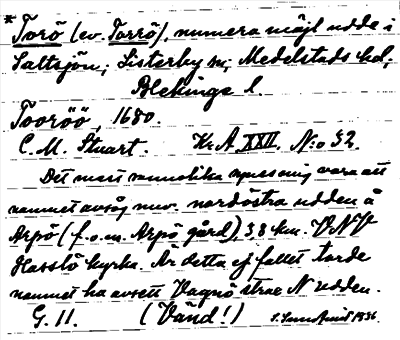 * Torö (ev. Torrö), numera möjl udde i
Saltsjön; Listerby sn; Medelstads hd;
Blekinge l.
Tooröö, 1680.
C. M. Stuart. Kr A XXII. N:o 32.
Det mest sannolika synes mig vara att
namnet avsåg nuv. nordöstra udden å
Arpö (f. o. m. Arpö gård), 3,8 km. VNV
Hasslö kyrka. Är detta ej fallet torde
namnet ha avsett Vagnö strax N udden.
G. 11. (Vänd!) 1936.